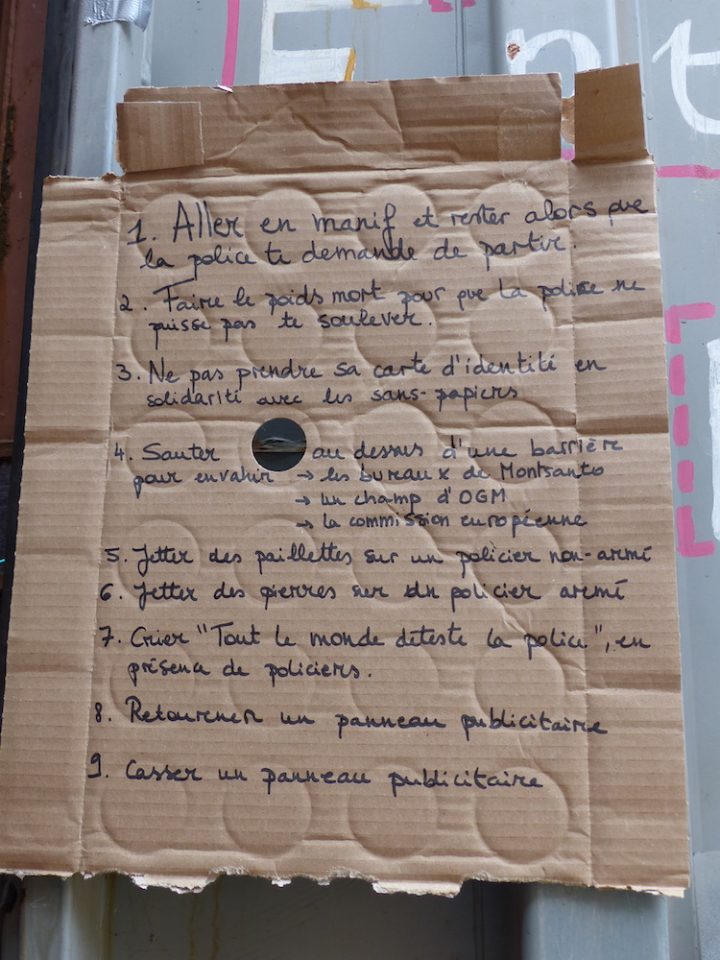 Ent
1. Aller en manif et rester alors que
la police te demande de partir.
2. Faire le poids mort pour que la police ne
puisse pas te soulever.
3. Ne pas prendre sa carte d'identité en
solidarité avec les sans-papiers
4. Sauter au dessus d'une barrière
pour envahir → les bureaux de Montsanto
→ un champ d'OGM
→ la commission européenne
5. Jetter des paillettes sur un policier non-armé
6. Jetter des pierres sur un policier armé
7. Crier "Tout le monde déteste la police", en
présence de policiers.
8. Retourner un panneau publicitaire
9. Casser un panneau publicitaire